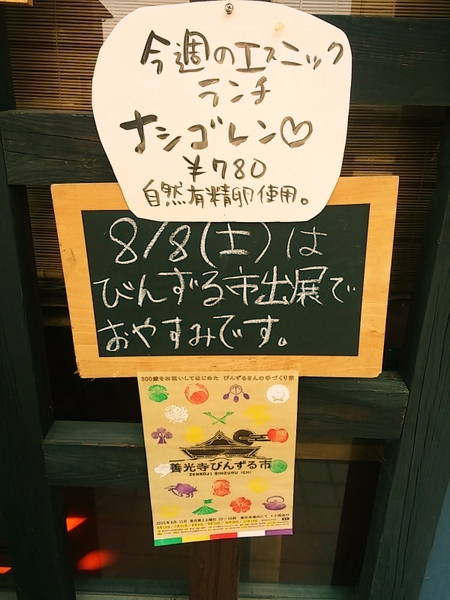 今週のエスニック
ランチ
ナシゴレン♡
¥780
自然有精卵使用。
8/8(土)は
びんずる市出展で
おやすみです。
300歳をお祝いしてはじめた びんずるさんの手づくり市
善光寺びんずる市
ZENKOJI BINZURU ICHI